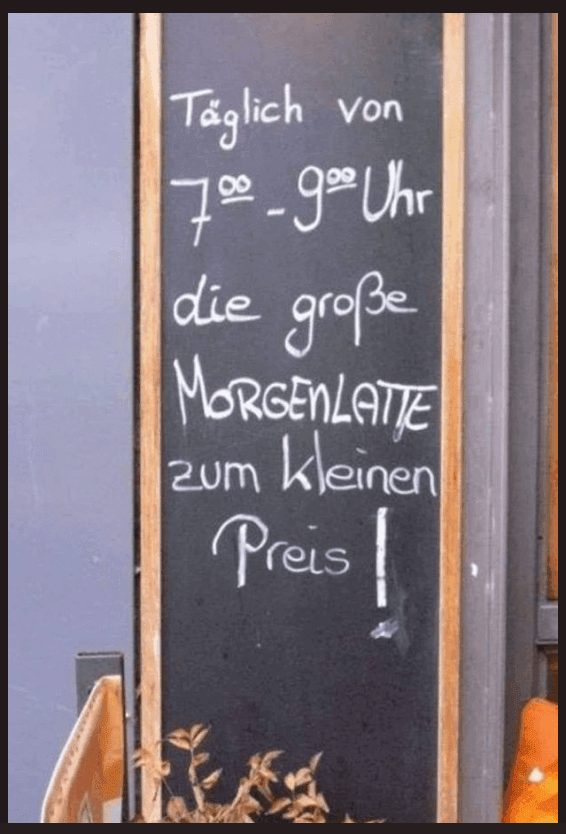 Täglich von
7⁰⁰ - 9⁰⁰ Uhr
die große
MORGENLATTE
zum kleinen
Preis!